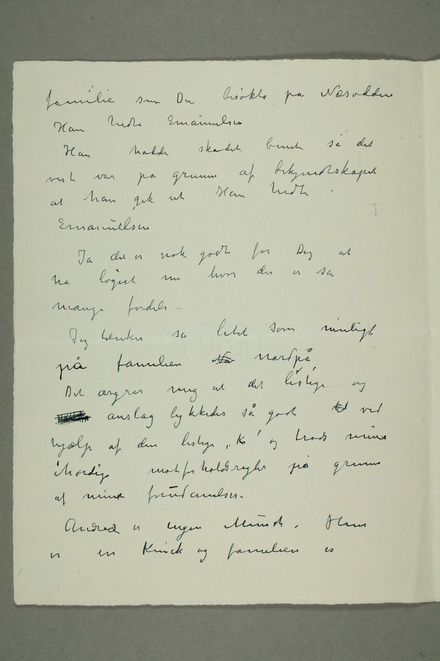 familie som Du besøkte på Næsodden
Han hedte Emanuelsen.
Han hadde skadet benet så det
vist var på grunn af bekjendtskapet
at han gik ut Han hedte
Emanuelsen
Ja det er nok godt for Dig at
ha logiet nu hvor der er så
mange fordele –
Jeg tænker så lidet som muligt
på familien nordpå
Det ærgrer mig at det listige og
anslag lykkedes så godt ved
hjælp af den listige „K" og trods mine
iherdige på grunn
af mine
Andrea er ingen Munch. Hun
er en Kinck og familien er